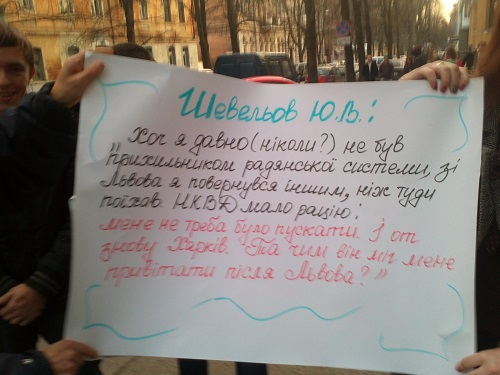 Шевельов Ю.В.:
„Хоч я давно (ніколи?) не був
прихильником радянської системи, зі
Львова я повернувся іншим, ніж туди
поїхав. НКВД мало рацію:
мене не треба було пускати. І от
знову Харків. Та чим він міг мене
привітати після Львова?"